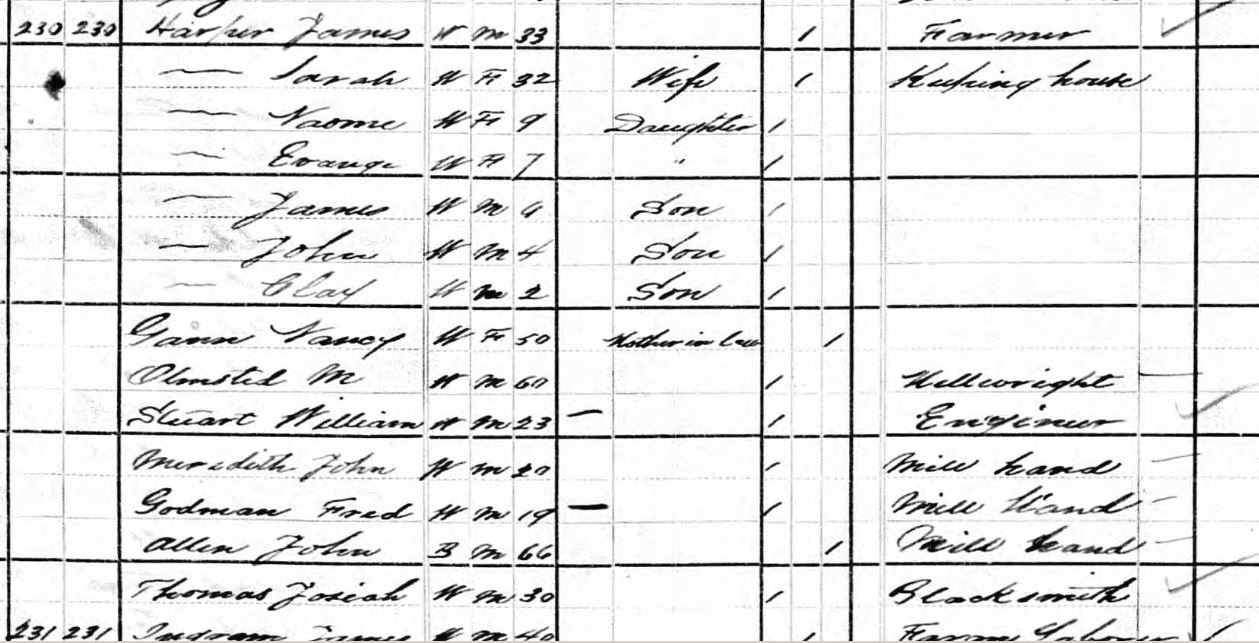 230 230 Harper James W M 33 1 Farmer
— Sarah W F 32 Wife 1 Keeping house
— Naome W F 9 Daughter 1
— Evange W F 7 " 1
— James W M 6 Son 1
— John W M 4 Son 1
— Clay W M 2 Son 1
Gann Nancy W F 50 Mother in law 1
Olmsted M W M 60 1 Millwright —
Stuart William W M 23 — 1 Engineer
Meredith John W M 20 1 Mill hand —
Godman Fred W M 19 — 1 Mill Hand -
Allen John B M 66 1 Mill hand -
Thomas Josiah W M 30 1 Blacksmith
231 231 Ingram James W M 40 1 Farm Laborer 1